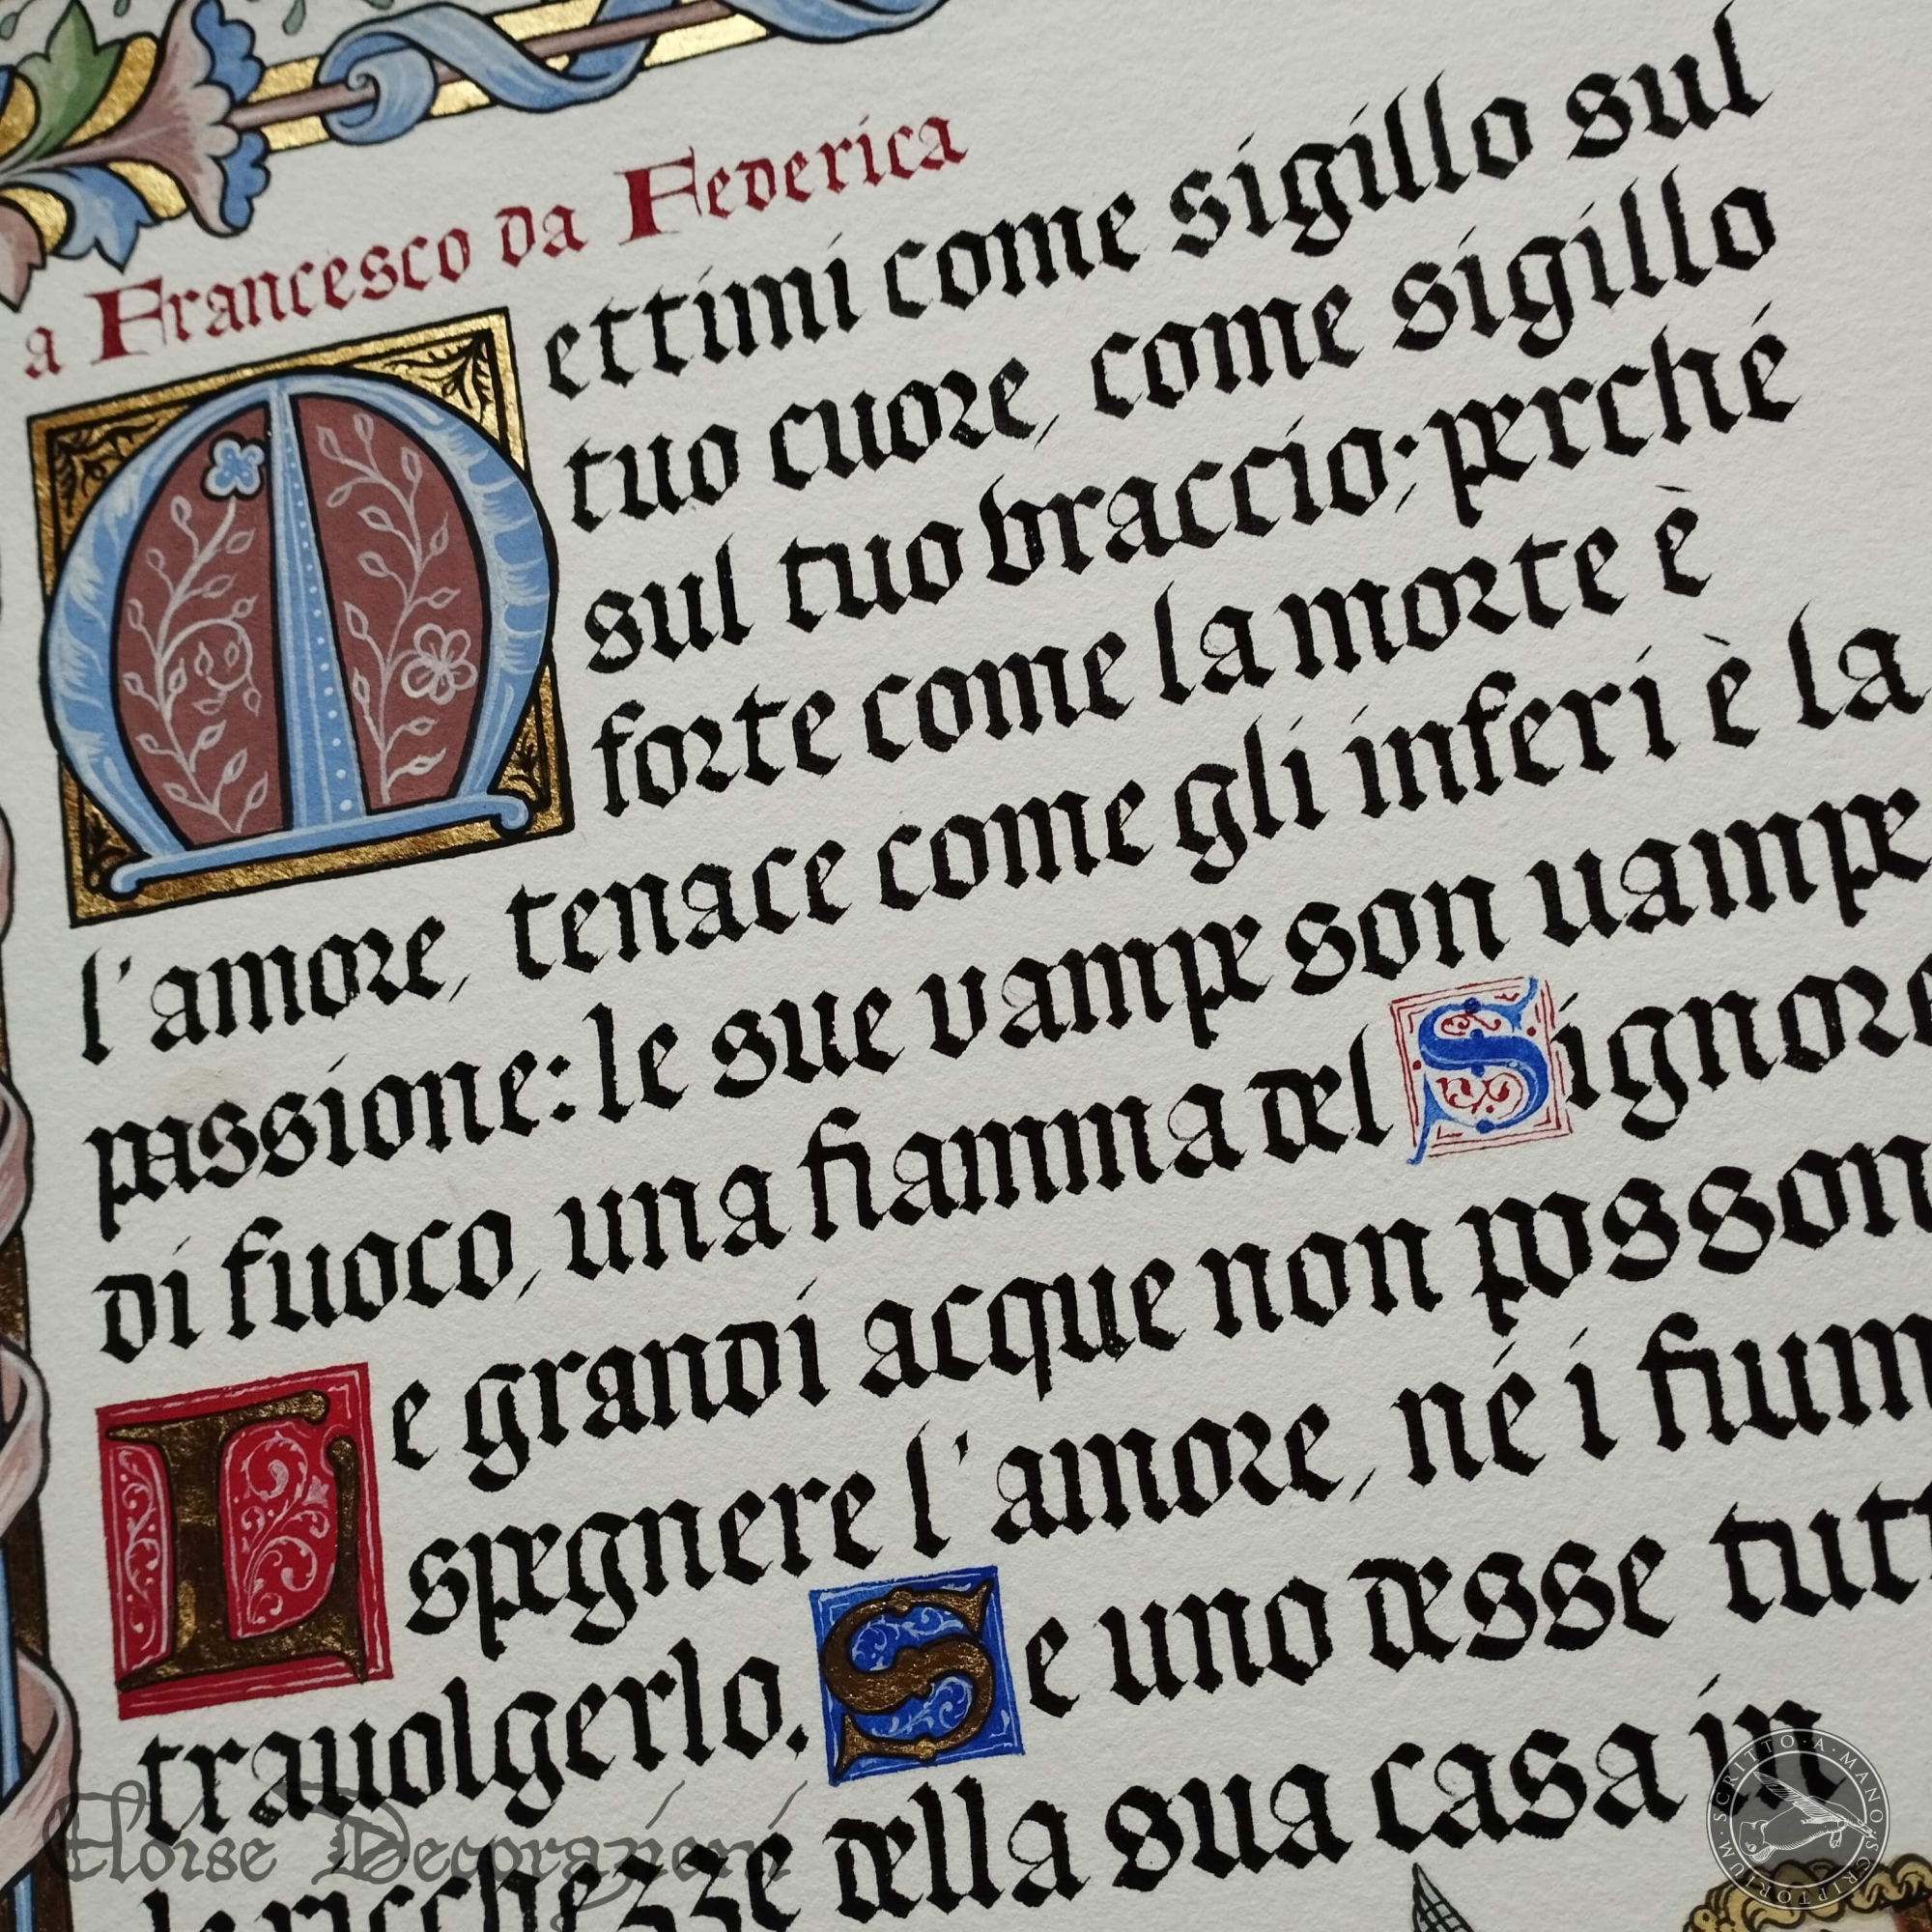 a Francesco da Federica
Mettimi come sigillo sul
tuo cuore, come sigillo
sul tuo braccio; perché
forte come la morte è
l'amore, tenace come gli inferi è la
passione: le sue vampe son uampe
di fuoco, una fiamma del Signore
Le grandi acque non posson
spegnere l'amore, né i fium
trauolgerlo. Se uno desse tutt
le ricchezze della sua casa in
Eloise Decorazioni
SCRITTO · A · MANO · SCRIPTORIUM ·